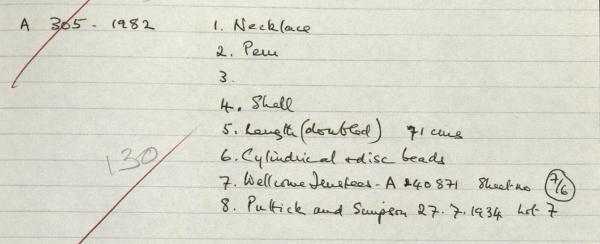 A 305-1982 1. Necklace
2. Peru
3.
4. Shell
5. Length (doubled) 71 cms
6. Cylindrical + disc beads
7. Wellcome Trustees - A 240871 Sheet no 7/6
130
8. Puttick and Simpson 27.7.1934 Lot 7